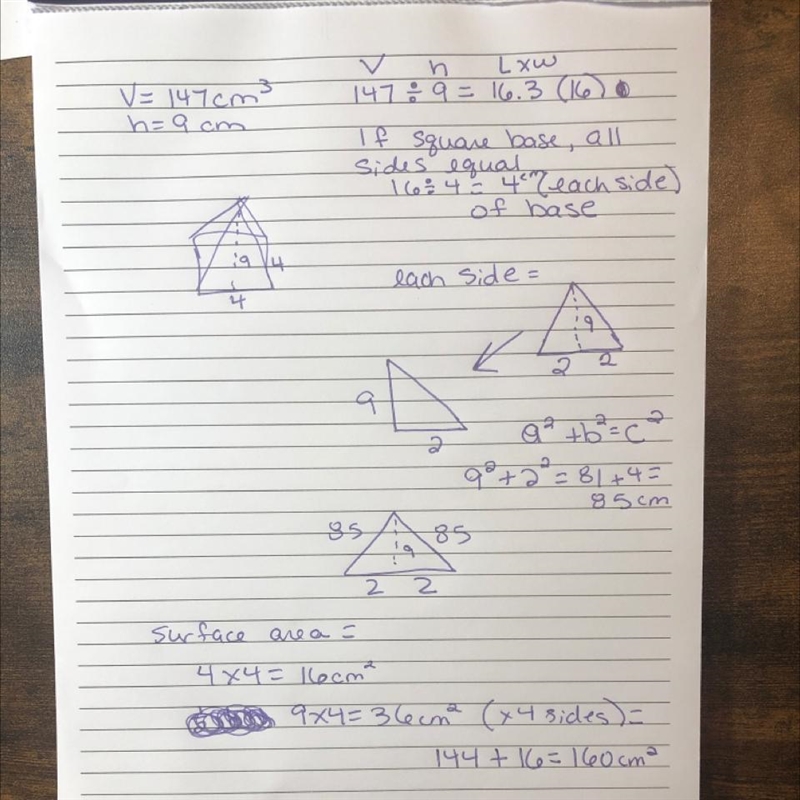 V = 147 cm³
h = 9 cm
V h L x w
147 ÷ 9 = 16.3 (16)
If square base, all
sides equal
16 ÷ 4 = 4 cm (each side)
of base
9 4
4
each side =
9
2 2
9
2
a² + b² = c²
9² + 2² = 81 + 4 =
85 cm
85 85
9
2 2
Surface area =
4 x 4 = 16 cm²
9 x 4 = 36 cm² (x 4 sides) =
144 + 16 = 160 cm²